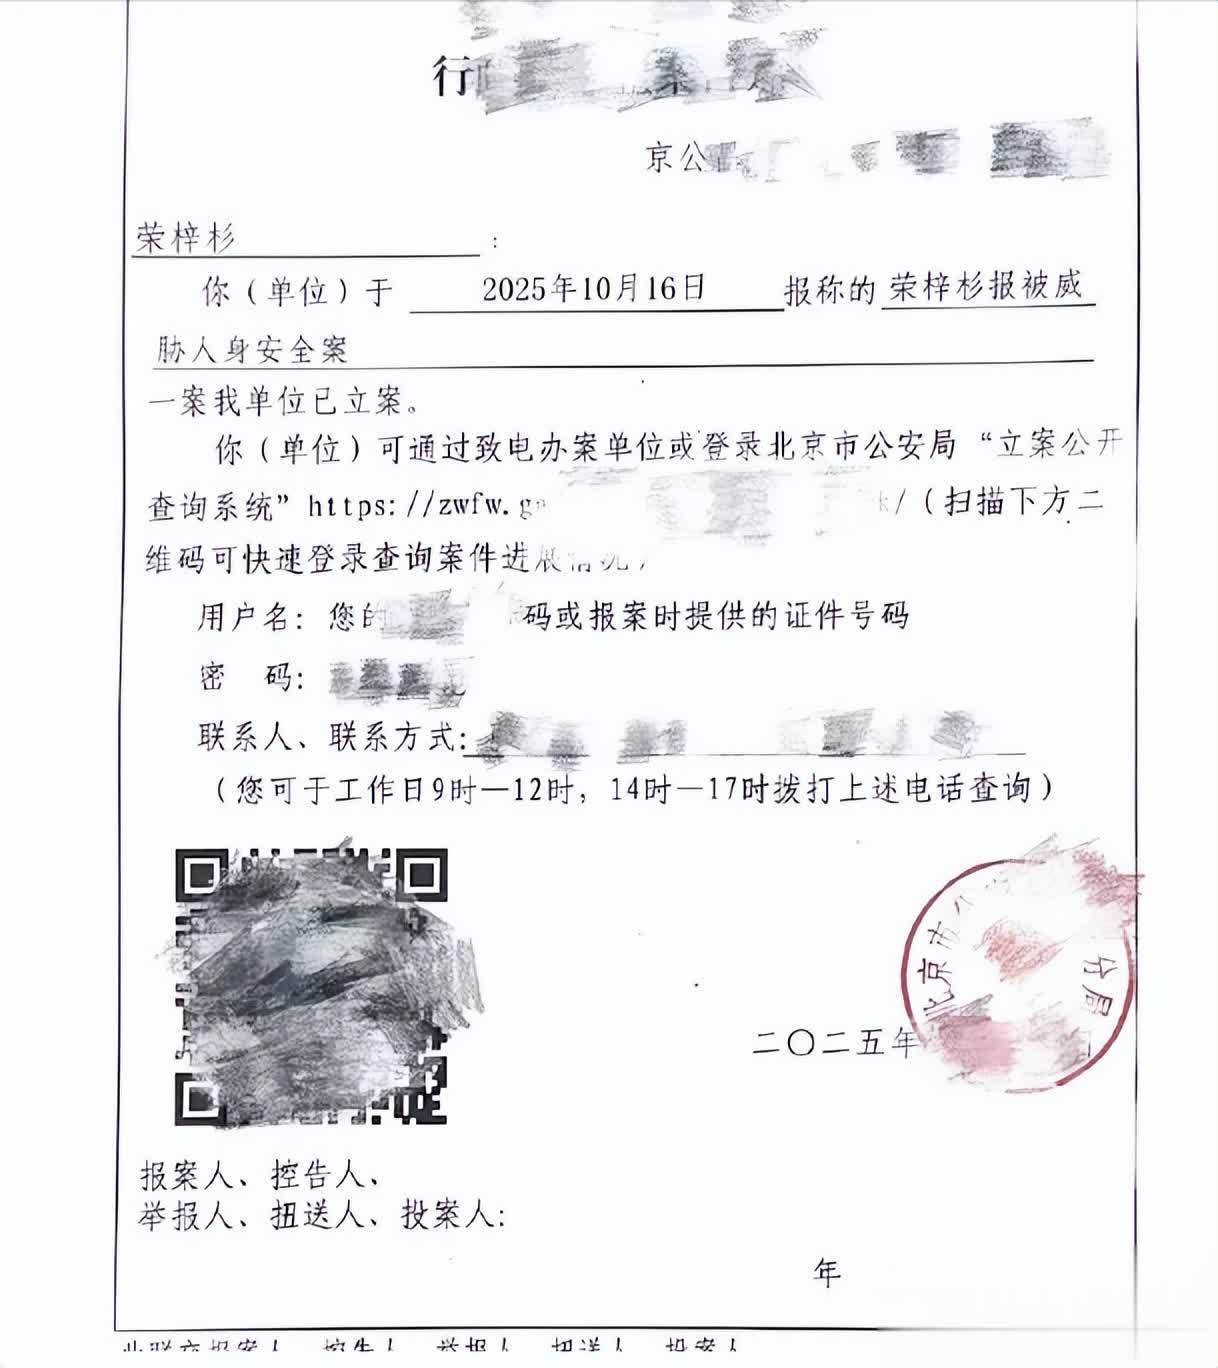 行
京公
荣梓杉 :
你（单位）于 2025年10月16日 报称的 荣梓杉报被威
胁人身安全案
一案我单位已立案。
你（单位）可通过致电办案单位或登录北京市公安局“立案公开
查询系统”https://zwfw.ga k/（扫描下方二
维码可快速登录查询案件进展情况）
用户名：您的 码或报案时提供的证件号码
密 码：
联系人、联系方式：
（您可于工作日9时—12时，14时—17时拨打上述电话查询）
北京市公 分局
二〇二五年
报案人、控告人、
举报人、扭送人、投案人：
年
此联交报案人、控告人、举报人、扭送人、投案人